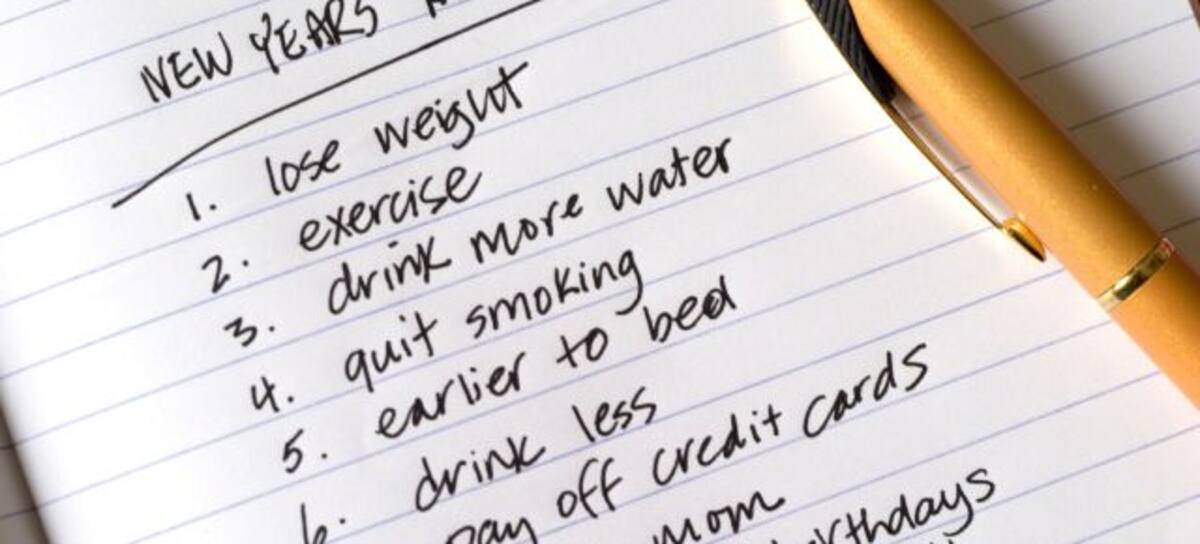 NEW YEARS
1. lose weight
2. exercise
3. drink more water
4. quit smoking
5. earlier to bed
6. drink less
pay off credit cards
mom